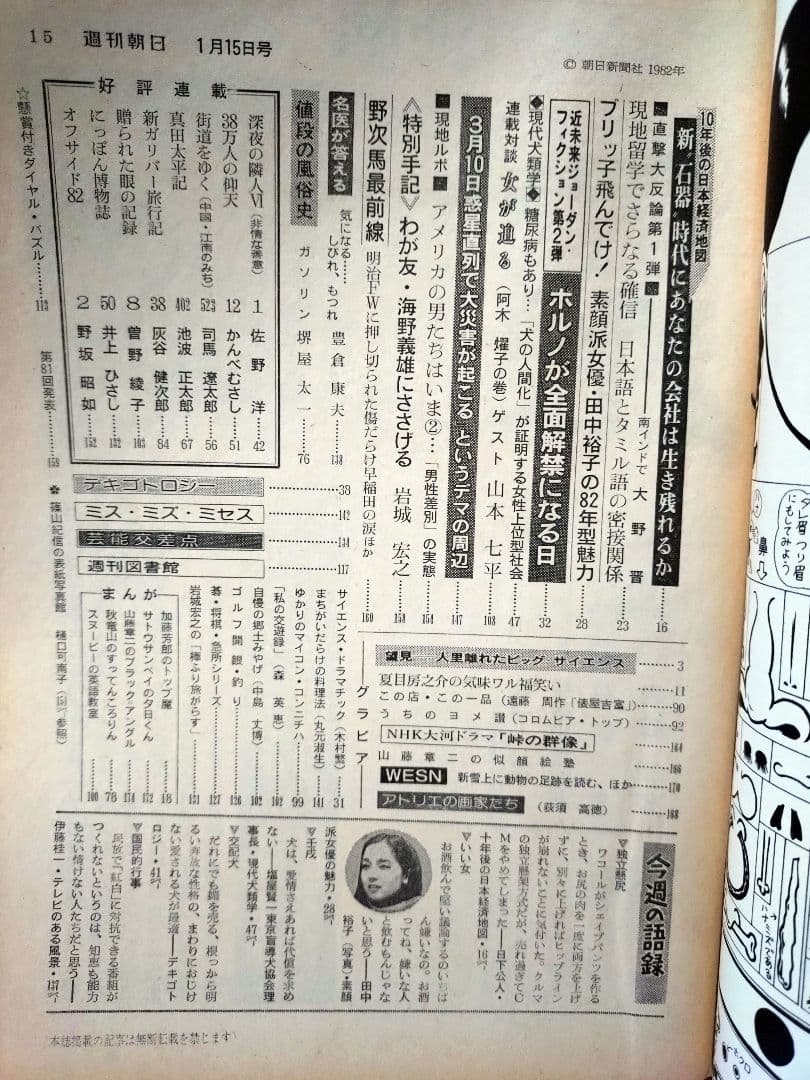 15 週刊朝日 1月15日号
© 朝日新聞社 1982年
10年後の日本経済地図
新"石器"時代にあなたの会社は生き残れるか……16
■直撃大反論第1弾■
現地留学でさらなる確信 日本語とタミル語の密接関係……23
南インドで 大野 晋
ブリッ子飛んでけ! 素顔派女優・田中裕子の82年型魅力……28
近未来ジョーダン・フィクション第2弾
ポルノが全面解禁になる日……32
◆現代犬類学◆ 糖尿病もあり…「犬の人間化」が証明する女性上位型社会……47
連載対談 女が迫る (阿木燿子の巻) ゲスト 山本七平……108
3月10日惑星直列で大災害が起こる というデマの周辺……147
■現地ルポ■ アメリカの男たちはいま②…「男性差別」の実態……154
〈特別手記〉わが友・海野義雄にささげる 岩城宏之……158
野次馬最前線 明治FWに押し切られた傷だらけ早稲田の涙ほか……160
名医が答える 気になる……しびれ、もつれ 豊倉康夫……138
値段の風俗史 ガソリン 堺屋太一……76
好評連載
深夜の隣人Ⅵ(非情な善意) 1 佐野 洋……42
38万人の仰天 12 かんべむさし……51
街道をゆく(中国・江南のみち) 523 司馬遼太郎……56
真田太平記 402 池波正太郎……67
新ガリバー旅行記 38 灰谷健次郎……84
贈られた眼の記録 8 曽野綾子……103
にっぽん博物誌 50 井上ひさし……132
オフサイド82 2 野坂昭如……152
☆懸賞付きダイヤル・パズル……113
第81回発表……159
テキゴトロジー……38
ミス・ミズ・ミセス……142
芸能交差点……134
週刊図書館……117
サイエンス・ドラマチック(木村繁)……31
まちがいだらけの料理法(丸元淑生)……141
ゆかりのマイコン・コンニチハ……99
「私の交遊録」(森 英恵)……102
自慢の郷土みやげ(中島丈博)……102
ゴルフ開眼・釣り……126
碁・将棋・急所シリーズ……127
岩城宏之の「棒ふり旅がらす」……131
まんが
加藤芳郎のトップ魔……18
サトウサンペイの夕日くん……172
山藤章二のブラック=アングル……174
秋竜山のすってんころりん……78
スヌーピーの英語教室……100
✿篠山紀信の表紙写真館 樋口可南子(151㌻参照)
グラビア
望見 人里離れたビッグ サイエンス……3
夏目房之介の気味ワル福笑い……11
この店・この一品(遠藤 周作「俵屋吉富」)……90
うちのヨメ讃(コロムビア・トップ)……92
NHK大河ドラマ「峠の群像」……164
山藤章二の似顔絵塾……166
WESN 新雪上に動物の足跡を読む、ほか……170
アトリエの画家たち(荻須 高徳)……168
今週の語録
▽独立懸尻
ワコールがシェイプパンツを作る
とき、お尻の肉を一度に両方を上げ
ずに、別々に上げればヒップライン
が崩れないことに気付いた。クルマ
の独立懸架方式だが、売れ過ぎてC
Mをやめてしまった――日下公人・
十年後の日本経済地図・16㌻
▽いい女
お酒飲んで堅い議論するのいちば
ん嫌いなの。お酒
ってね、嫌いな人
と飲むもんじゃな
いと思う――田中
裕子(写真)・素顔
派女優の魅力・28㌻
▽壬戌
犬は、愛情さえあれば代償を求め
ない――塩屋賢一東京盲導犬協会理
事長・現代犬類学・47㌻
▽交配犬
だれにでも媚を売る、根っから明
るい奔放な性格の、まわりにおじけ
ない愛される犬が最適――デキゴト
ロジー・41㌻
▽国民的行事
民放で『紅白』に対抗できる番組が
つくれないというのは、知恵も能力
もない情けない人たちだと思う――
伊藤桂一・テレビのある風景・137㌻
(本誌掲載の記事は無断転載を禁じます)
タレ眉 つり眉
にもしてみよう
鼻